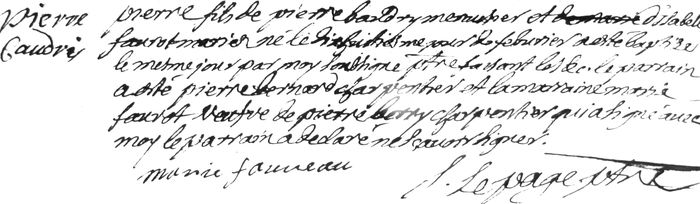 pierre
Baudris
pierre fils de pierre baudry menusier et d'isabel
fauvot mariez né le huictiesme jour de febvrier a esté baptizé
le mesme jour par moy soubsigné ptre faisant les le parrain
a esté pierre bernard charpentier et la maraine marie
fauvot vaefve de pierre charpentier qui a signé avec
moy le parain a declaré ne scavoir signer.
marie fauveau
J. Lepage ptre